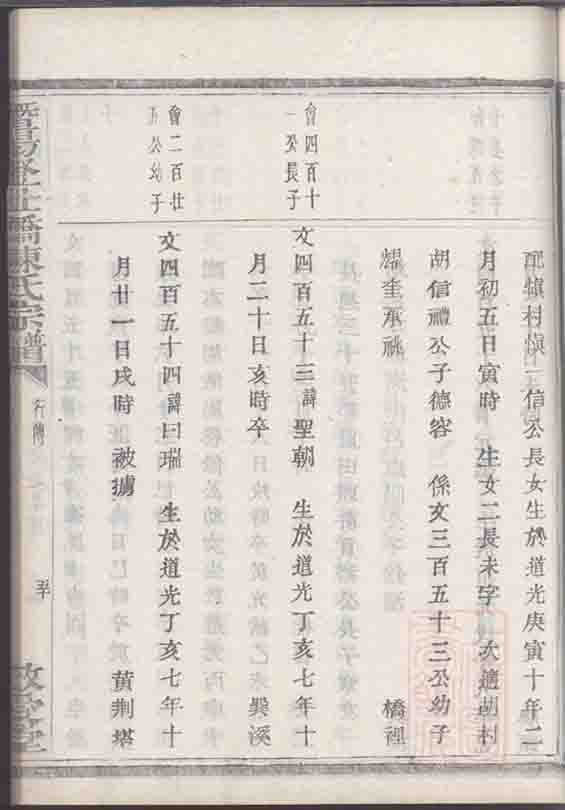 配愼村愼一信公長女生於道光庚寅十年二
月初五日寅時 生女二長未字 次適胡村
胡信禮公子德容 係文三百五十三公幼子
燿奎承祧 橋裡
會四百十
一公長子
文四百五十三諱聖朝 生於道光丁亥七年十
月二十日亥時卒 巽溪
會二百廿
五公幼子
文四百五十四諱曰瑞 生於道光丁亥七年十
月廿一日戌時 被擄 黃荆塔
陳氏宗譜
行傳